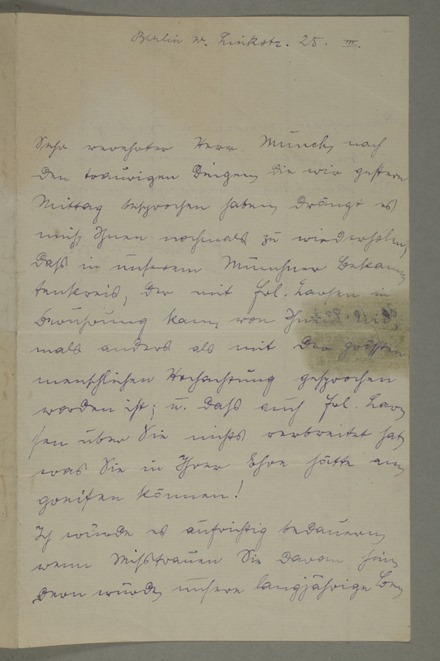 Berlin W. Linkstr. 25. III.
Sehr verehrter Herr Munch, nach
den traurigen Dingen, die wir gestern
Mittag besprochen haben, drängt es
mich Ihnen nochmals zu wiederholen,
daß in unserem Münchner Bekann
tenkreis, der mit Frl. Larsen in
Berührung kam, von Ihnen nie
mals anders als mit der größten
menschlichen Hochachtung gesprochen
worden ist; u. daß auch Frl. Lar
sen über Sie nichts verbreitet hat,
was Sie in Ihrer Ehre hätte an
greifen können!
Ich würde es aufrichtig bedauern,
wenn Misstrauen Sie daran hin
dern würde, unsere langjährige Be